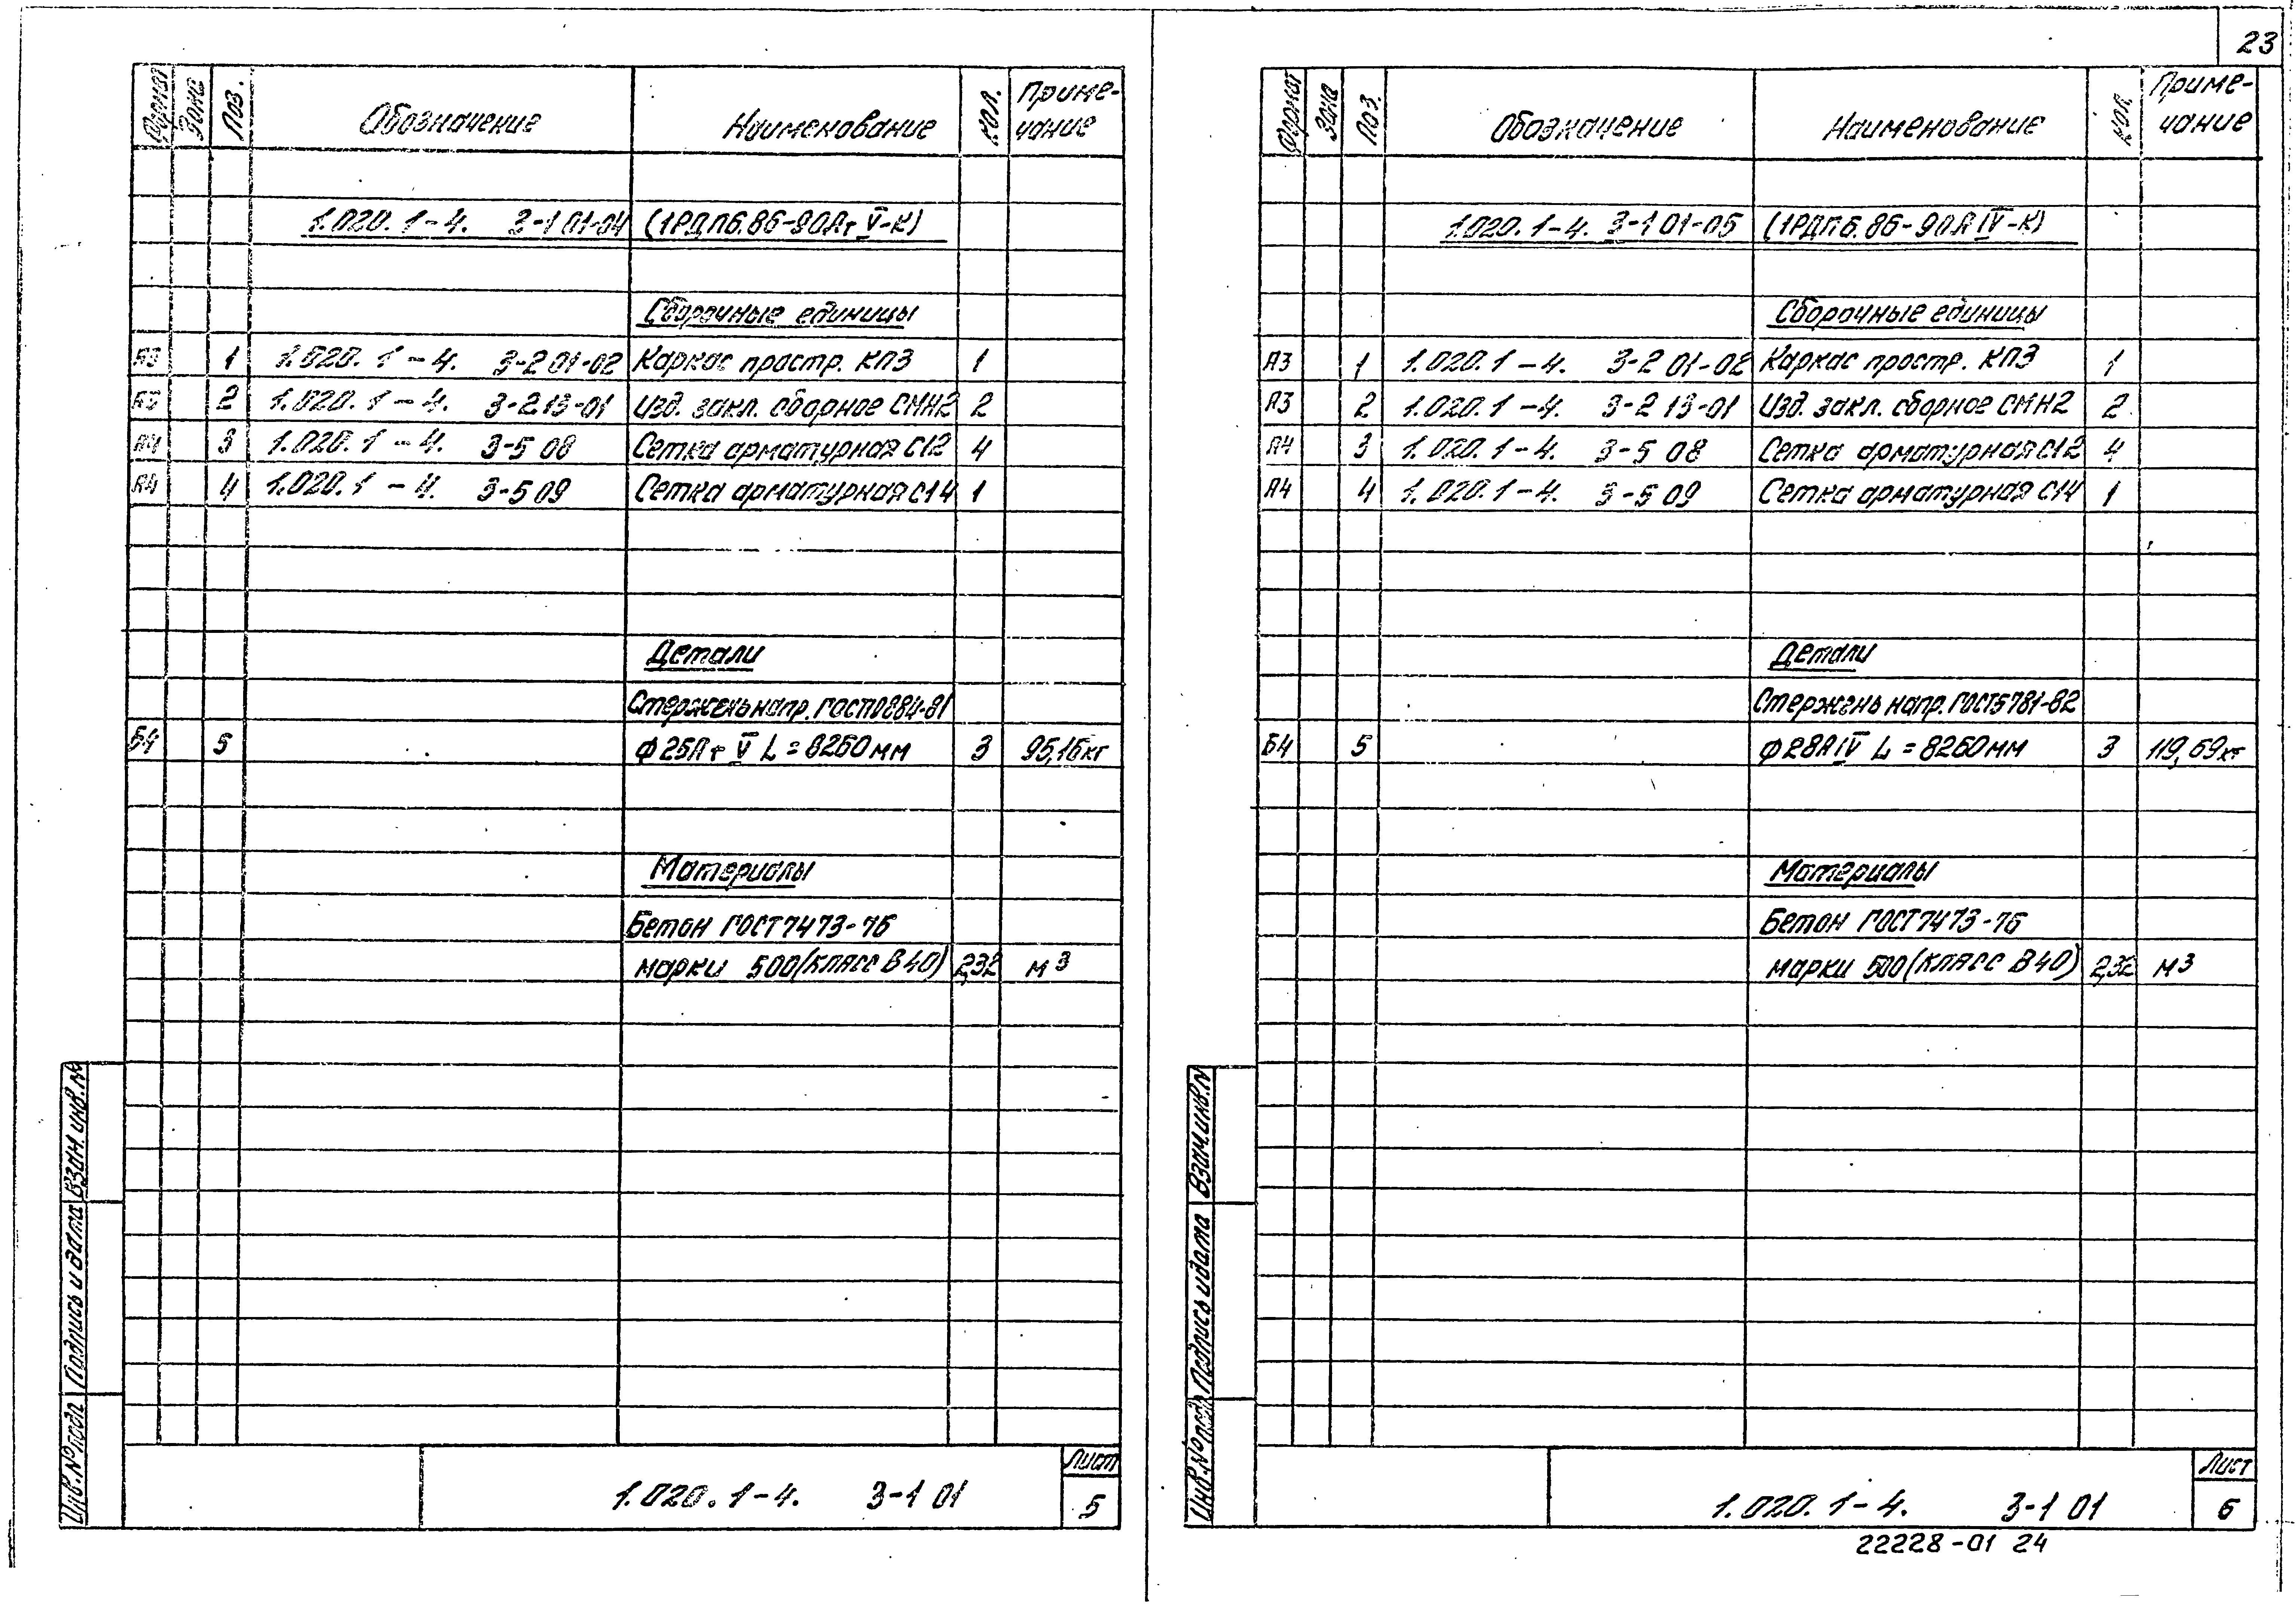 23
Формат Зона Поз. Обозначение Наименование Кол. Приме-
чание
1.020.1-4. 3-1 01-04 (1РДП6.86-90АтV-К)
Сборочные единицы
А3 1 1.020.1-4. 3-2 01-02 Каркас простр. КП3 1
А3 2 1.020.1-4. 3-2 13-01 Изд. закл. сборное СМН2 2
А4 3 1.020.1-4. 3-5 08 Сетка арматурная С12 4
А4 4 1.020.1-4. 3-5 09 Сетка арматурная С14 1
Детали
Стержень напр. ГОСТ10884-81
Б4 5 Ф25АтV L=8260мм 3 95,16кг
Материалы
Бетон ГОСТ7473-76
марки 500(класс В40) 2,32 м3
Взам. инв. №
Подпись и дата
Инв. № подл
1.020.1-4. 3-1 01
Лист
5
Формат Зона Поз. Обозначение Наименование Кол. Приме-
чание
1.020.1-4. 3-1 01-05 (1РДП6.86-90АIV-К)
Сборочные единицы
А3 1 1.020.1-4. 3-2 01-02 Каркас простр. КП3 1
А3 2 1.020.1-4. 3-2 13-01 Изд. закл. сборное СМН2 2
А4 3 1.020.1-4. 3-5 08 Сетка арматурная С12 4
А4 4 1.020.1-4. 3-5 09 Сетка арматурная С14 1
Детали
Стержень напр. ГОСТ5781-82
Б4 5 Ф28АIV L=8260мм 3 119,69кг
Материалы
Бетон ГОСТ7473-76
марки 500(класс В40) 2,32 м3
Взам. инв. №
Подпись и дата
Инв. № подл
1.020.1-4. 3-1 01
Лист
6
22228-01 24